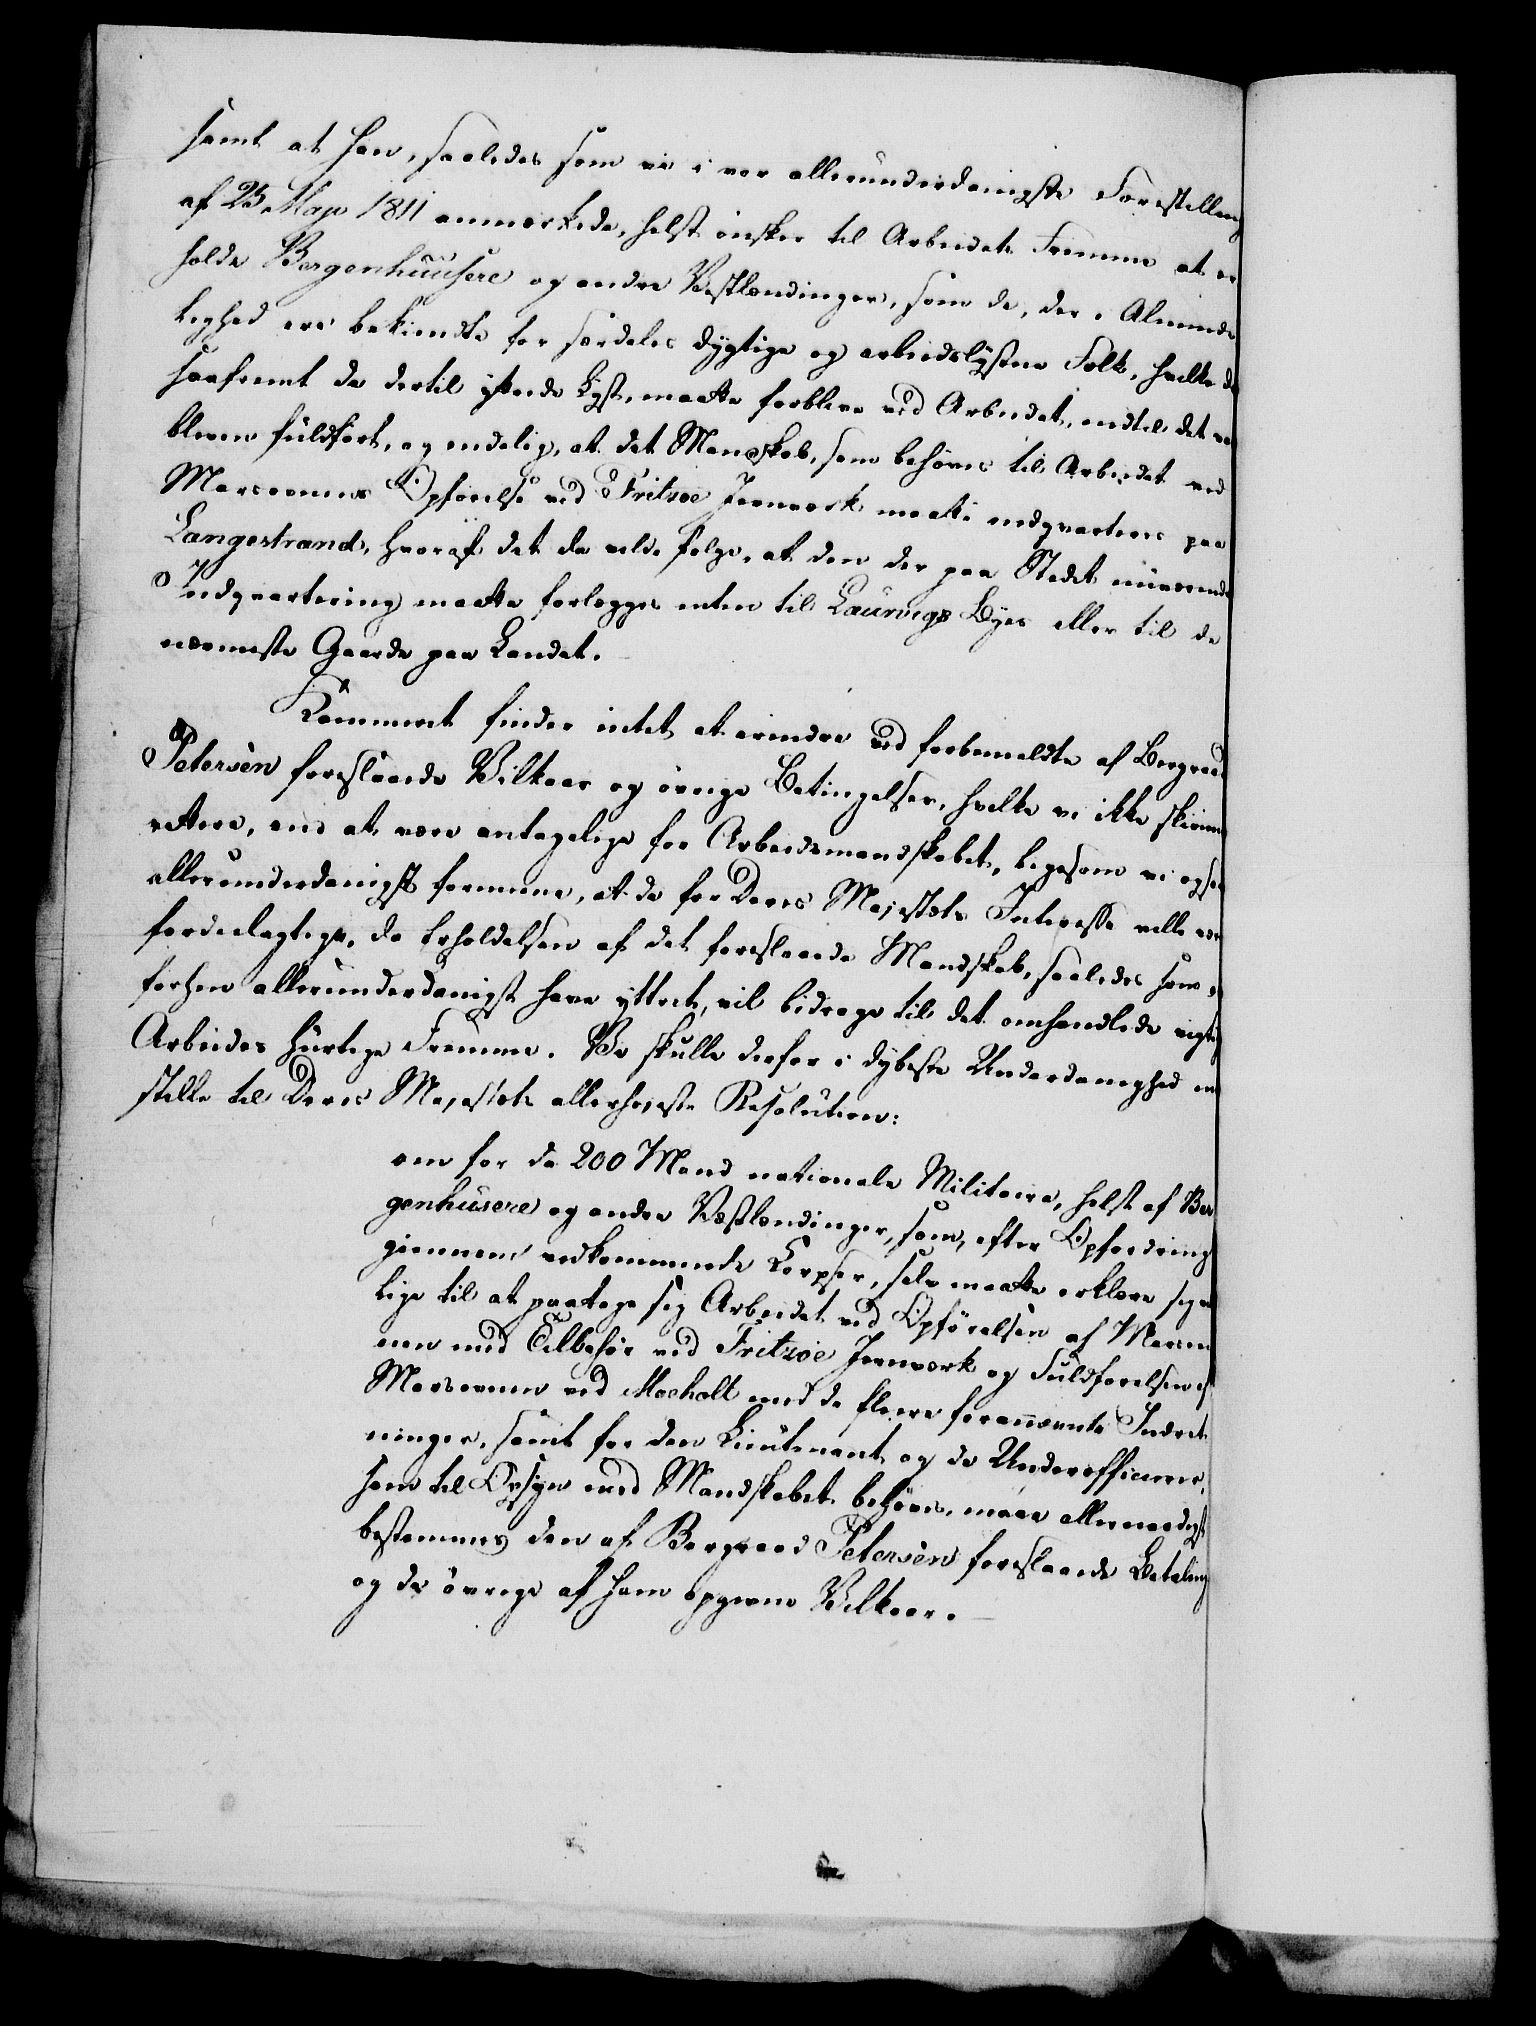 samt at han, saaledes som vi i vor allerunderdanigste Forestilling
af 25 Maji 1811 anmærkede, helst ønsker til Arbeidets Fremme at er
holde Bergenhuusere og andre Vestlændinger, som de, der i Alminde
lighed ere bekiendte for særdeles dygtige og arbeidslystne Folk, hvilke da
saafremt de dertil yttrede Lyst, maatte forblive ved Arbeidet, indtil det var
bleven fuldført, og endelig, at det Mandskab, som behøves til Arbeidet ved
Masovnens Opførelse ved Fritzøe Jernværk maatte indqvarteres paa
Langestrand, hvoraf det da vilde følge, at den der paa Stedet nuværende
Indqvartering maatte forlægges enten til Laurvigs Byes eller til de
nærmeste Gaarde paa Landet.
Kammeret finder intet at erindre ved forbemeldte af Bergraad
Petersen foreslaaede Vilkaar og øvrige Betingelser, hvilke vi ikke skiønne
rettere, end at være antagelige for Arbeidsmandskabet, ligesom vi ogsaa
allerunderdanigst formene, at de for Deres Majestæts Interesse ville være
fordeelagtige, da Erholdelsen af det foreslaaede Mandskab, saaledes som vi
forhen allerunderdanigst have yttret, vil bidrage til det omhandlede vigtige
Arbeides hurtige Fremme. Vi skulle derfor i dybeste Underdanighed ind
stille til Deres Majestæts allerhøieste Resolution:
om for de 200 Mand nationale Militaire, helst af Ber
genhusere og andre Vestlændinger, som, efter Opfordring
giennem vedkommende Corpser, selv maatte erklære sig vil
lige til at paatage sig Arbeidet ved Opførelsen af Masov
nen med Tilbehør ved Fritzøe Jernværk og Fuldførelsen af
Masovnen ved Moeholt med de fleere forannævnte Indret
ninger, samt for den Lieutenant og de Underofficerer,
som til Opsyn med Mandskabet behøves, maae allernaadigst
bestemmes den af Bergraad Petersen foreslaaede Betaling
og de øvrige af ham opgivne Vilkaar.